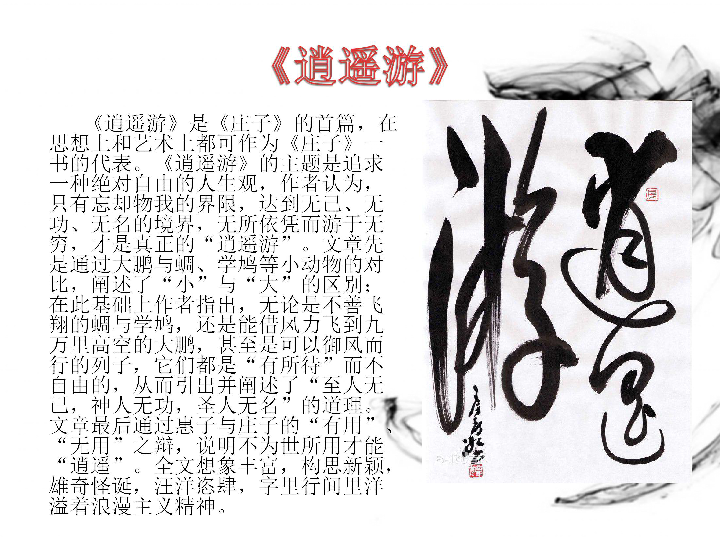 《逍遥游》
《逍遥游》是《庄子》的首篇，在
思想上和艺术上都可作为《庄子》一
书的代表。《逍遥游》的主题是追求
一种绝对自由的人生观，作者认为，
只有忘却物我的界限，达到无己、无
功、无名的境界，无所依凭而游于无
穷，才是真正的“逍遥游”。文章先
是通过大鹏与蜩、学鸠等小动物的对
比，阐述了“小”与“大”的区别；
在此基础上作者指出，无论是不善飞
翔的蜩与学鸠，还是能借风力飞到九
万里高空的大鹏，甚至是可以御风而
行的列子，它们都是“有所待”而不
自由的，从而引出并阐述了“至人无
己，神人无功，圣人无名”的道理。
文章最后通过惠子与庄子的“有用”、
“无用”之辩，说明不为世所用才能
“逍遥”。全文想象丰富，构思新颖，
雄奇怪诞，汪洋恣肆，字里行间里洋
溢着浪漫主义精神。
逍遥
游